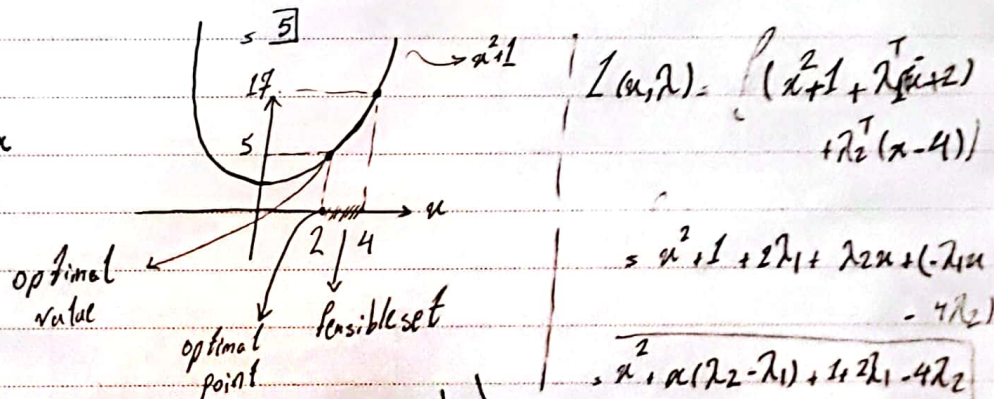 = 5
x²+1
17
5
x
x
2 4
optimal
value
optimal
point
feasible set
L(x,λ) = (x²+1 + λ₁ᵀ(-x+2)
+λ₂ᵀ(x-4))
= x²+1 + 2λ₁ + λ₂x + (-λ₁x
- 4λ₂)
= x² + x(λ₂-λ₁) + 1+2λ₁-4λ₂